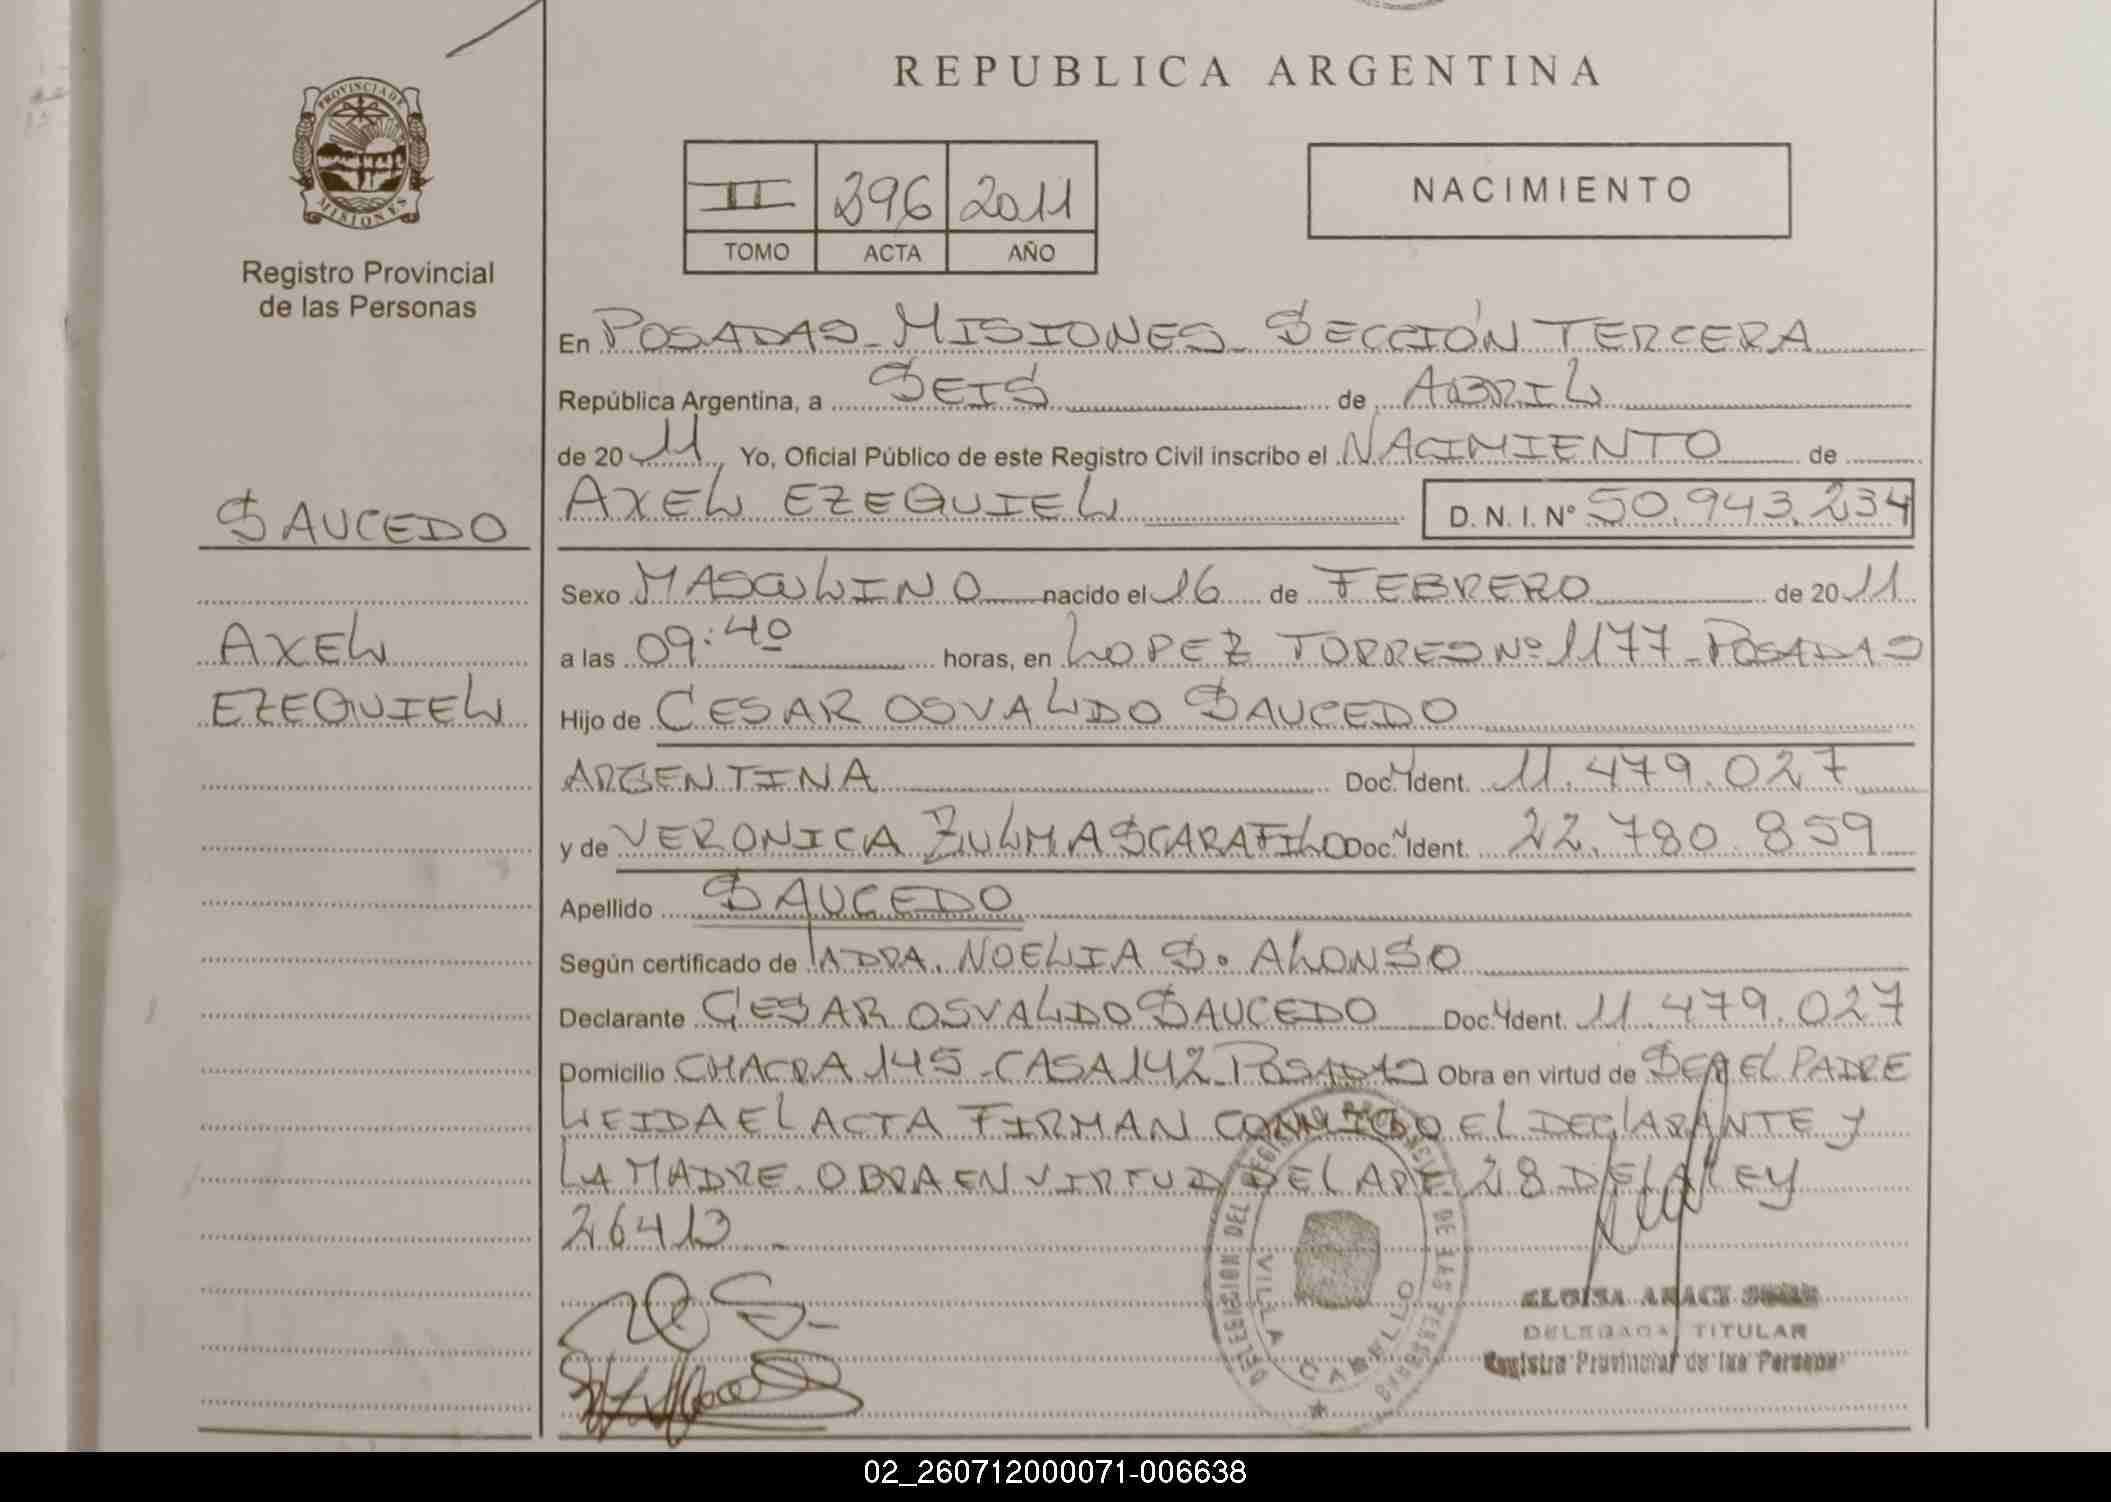 REPUBLICA ARGENTINA
PROVINCIA DE
MISIONES
Registro Provincial
de las Personas
II 396 2011
TOMO ACTA AÑO
NACIMIENTO
En POSADAS - MISIONES - SECCIÓN TERCERA
República Argentina, a SEIS de ABRIL
de 20 11, Yo, Oficial Público de este Registro Civil inscribo el NACIMIENTO de
AXEL EZEQUIEL D. N. I. N° 50.943.234
SAUCEDO
AXEL
EZEQUIEL
Sexo MASCULINO nacido el 16 de FEBRERO de 20 11
a las 09:40 horas, en LOPEZ TORRES Nº 1177 - POSADAS
Hijo de CESAR OSVALDO SAUCEDO
ARGENTINA Doc. Ident. 11.479.027
y de VERONICA ZULMA SCARAFILO Doc. Ident. 22.780.859
Apellido SAUCEDO
Según certificado de LA DRA. NOELIA S. ALONSO
Declarante CESAR OSVALDO SAUCEDO Doc. Ident. 11.479.027
Domicilio CHACRA 145 - CASA 142 POSADAS Obra en virtud de SER EL PADRE
LEIDA EL ACTA FIRMAN CONMIGO EL DECLARANTE Y
LA MADRE. OBRA EN VIRTUD DEL 28 DE LA LEY
26413
DELEGACION DEL REGISTRO PROVINCIAL DE LAS PERSONAS
VILLA CABELLO
ELOISA
DELEGADA TITULAR
Registro Provincial de las Personas
02_260712000071-006638